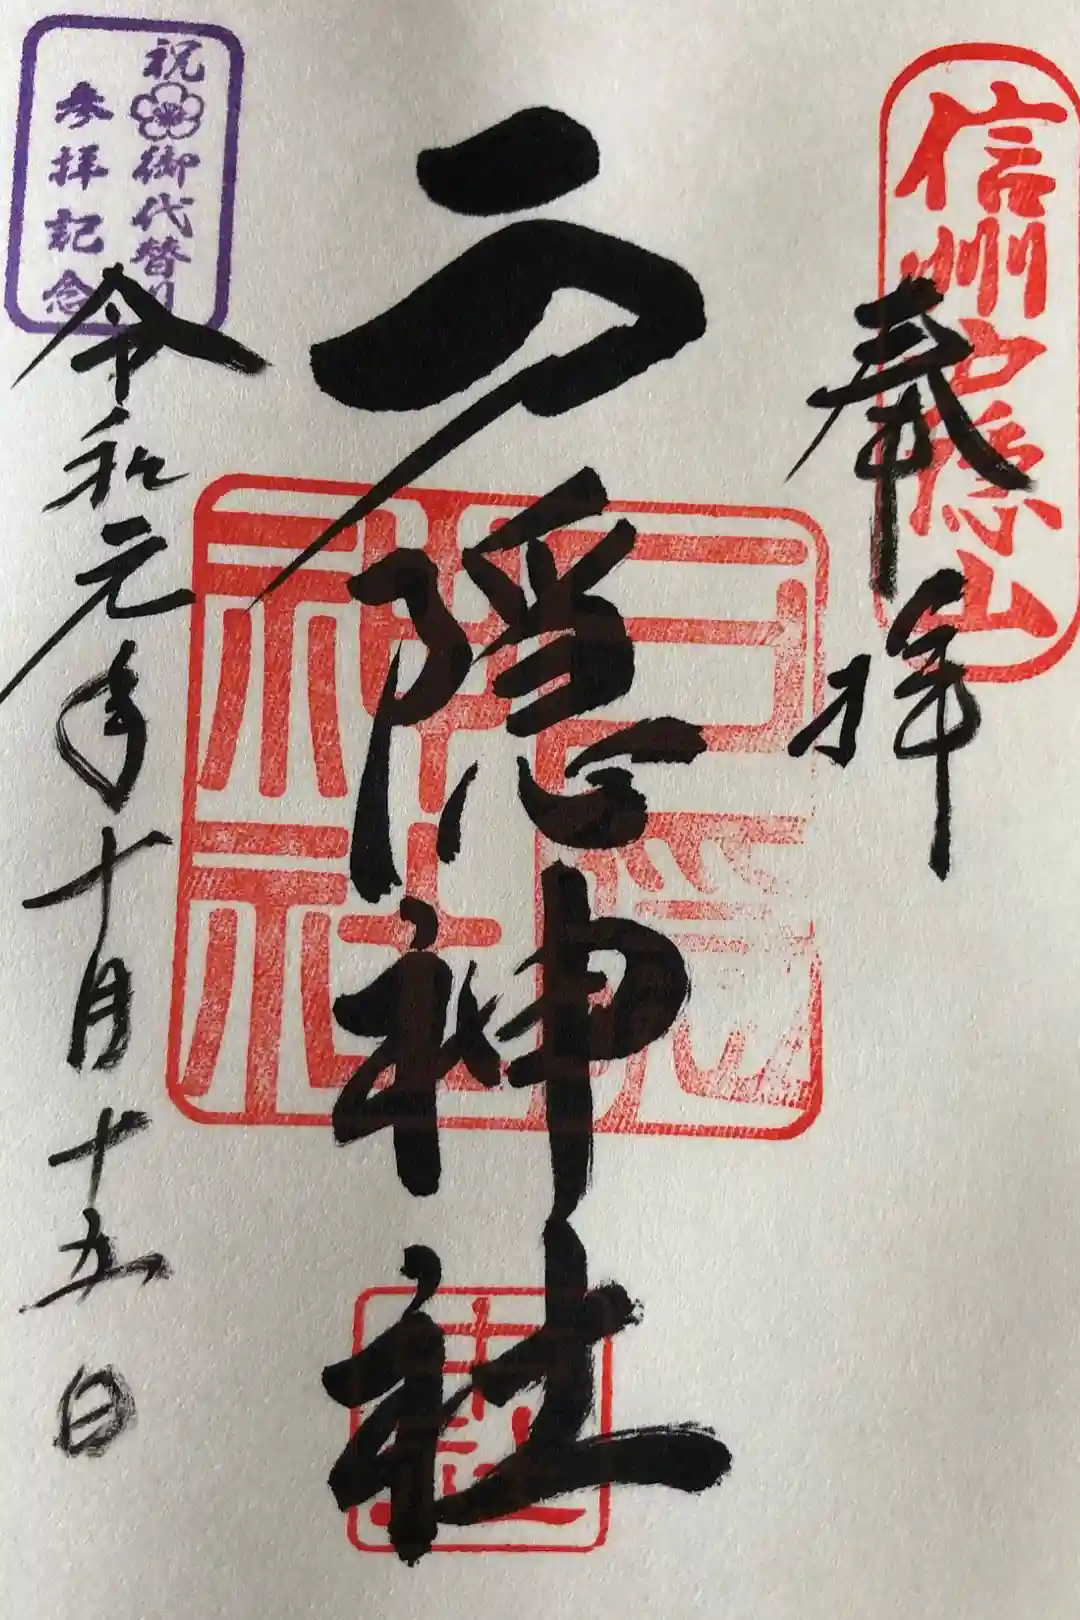 信州戸隠山
奉拝
戸隠神社
戸隠神社
中社
祝御代替り
参拝記念
令和元年十月十五日